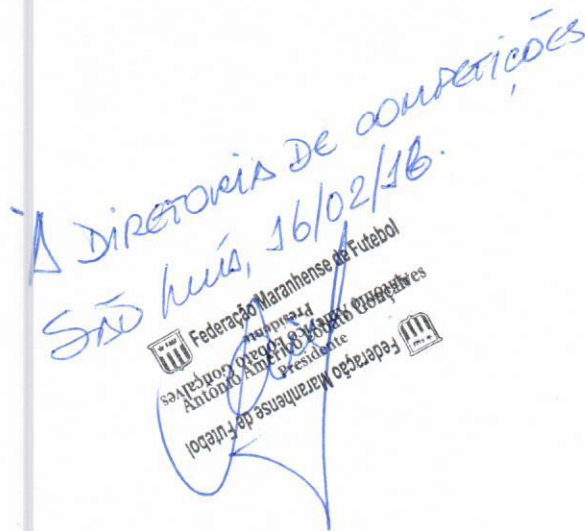 À DIRETORIA DE COMPETIÇÕES
SÃO LUÍS, 16/02/16.
Federação Maranhense de Futebol
Antônio Américo Lobato Gonçalves
Presidente
Antônio Américo Lobato Gonçalves
Presidente
Federação Maranhense de Futebol